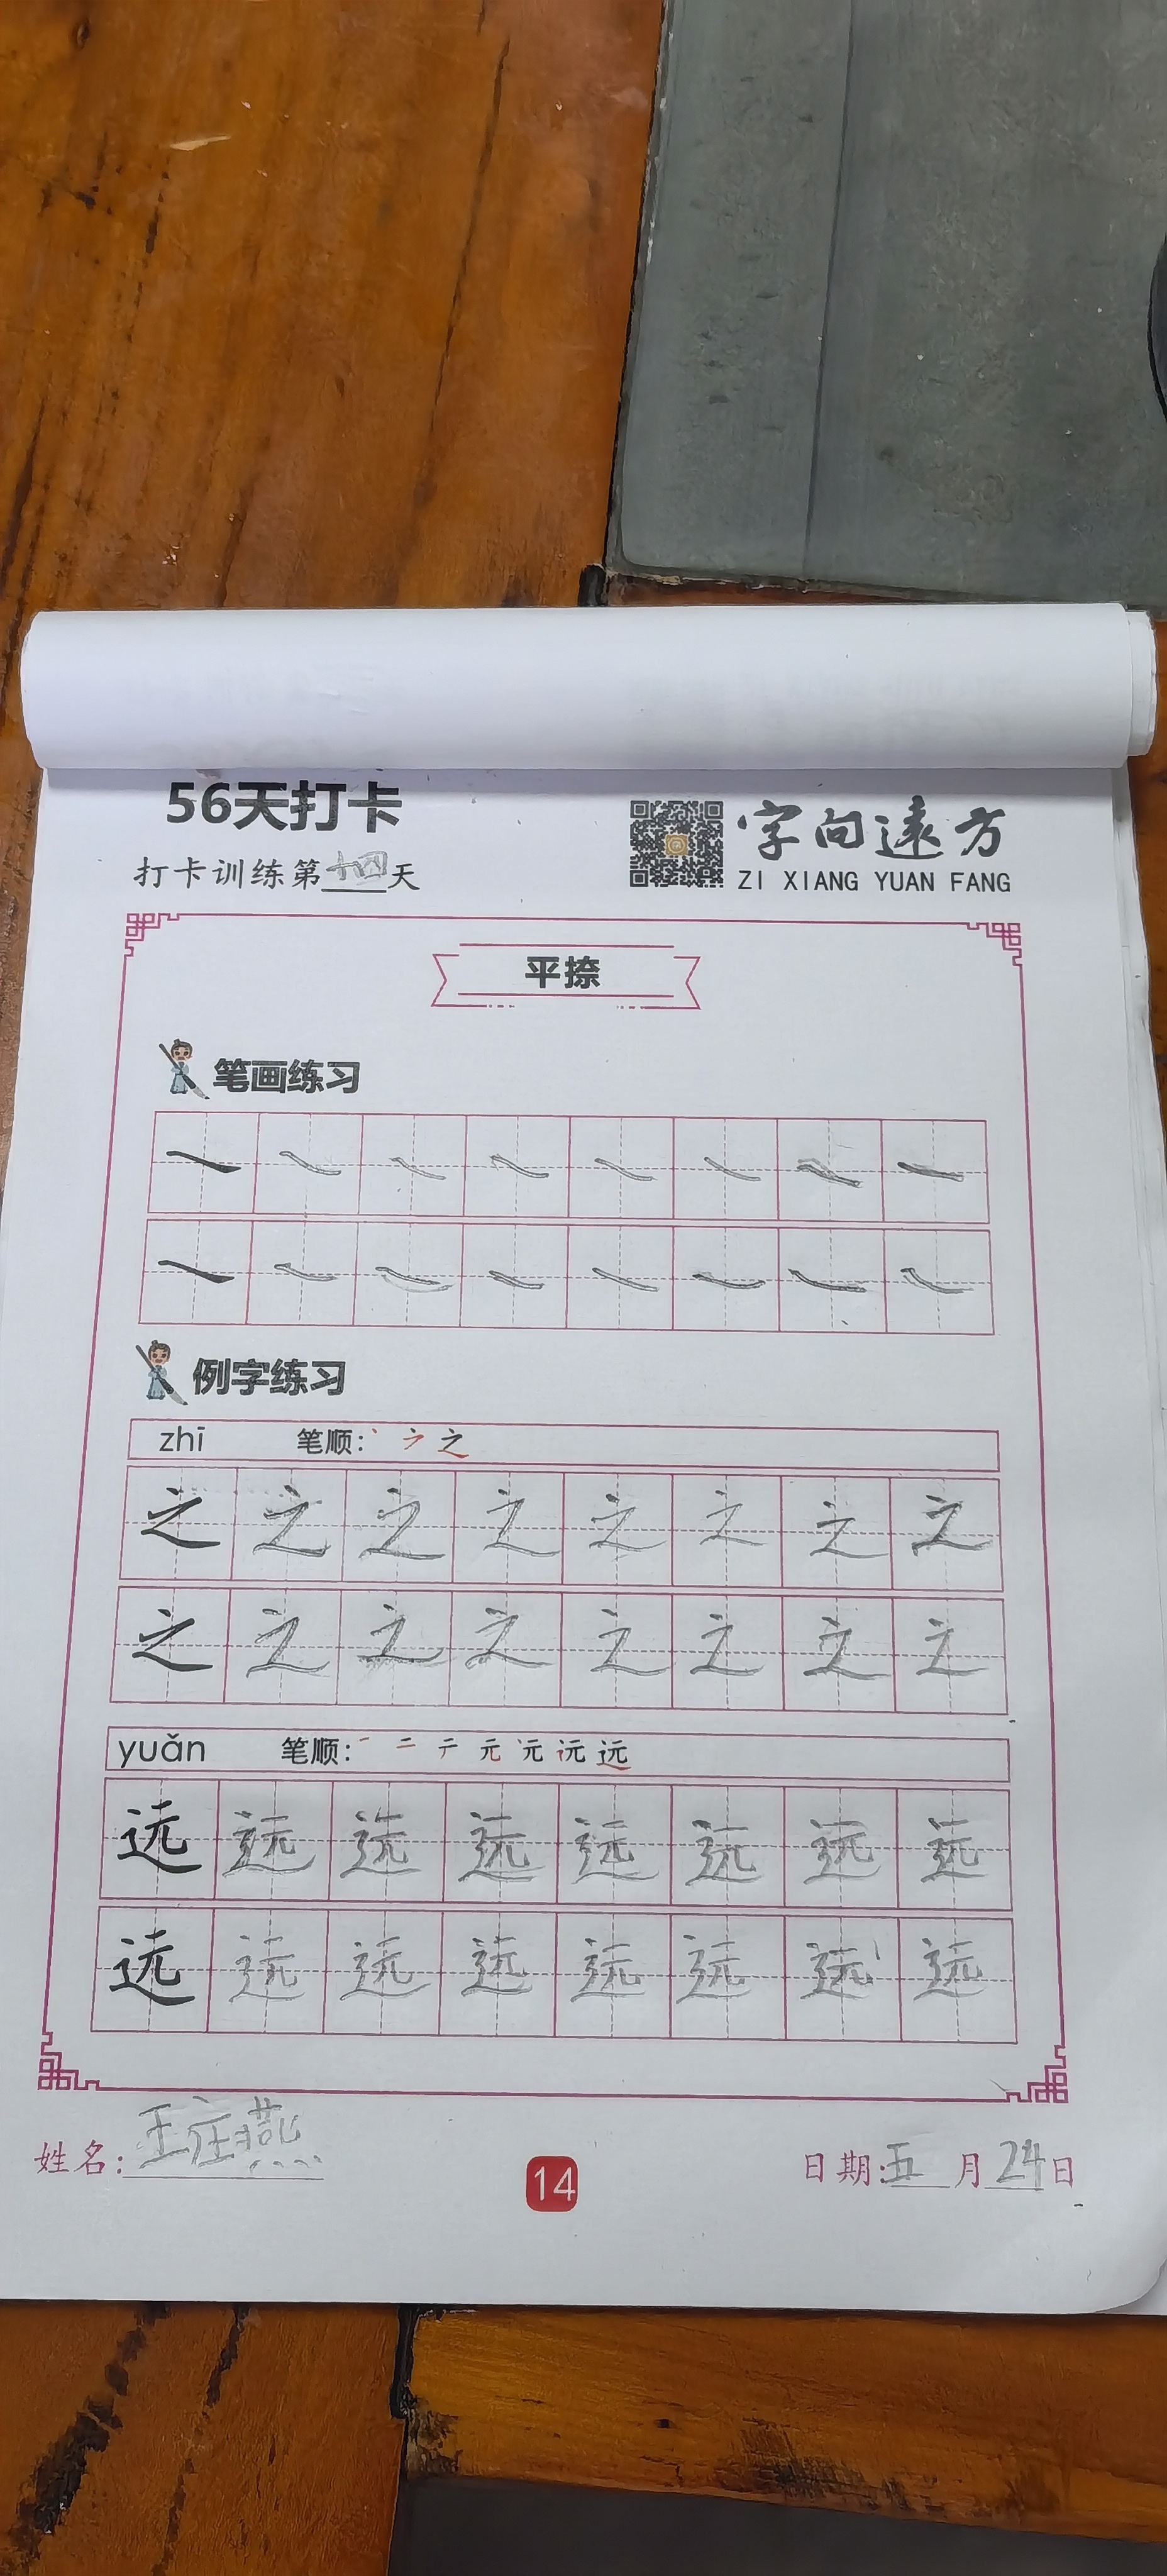 56天打卡
打卡训练第十四天
字向遠方
ZI XIANG YUAN FANG
平捺
笔画练习
例字练习
zhī 笔顺: 丶 ㇇ 之
之 之 之 之 之 之 之 之
之 之 之 之 之 之 之 之
yuǎn 笔顺: 一 二 テ 元 元 远 远
远 远 远 远 远 远 远 远
远 远 远 远 远 远 远 远
姓名: 王 燕
14
日期: 五 月 24 日